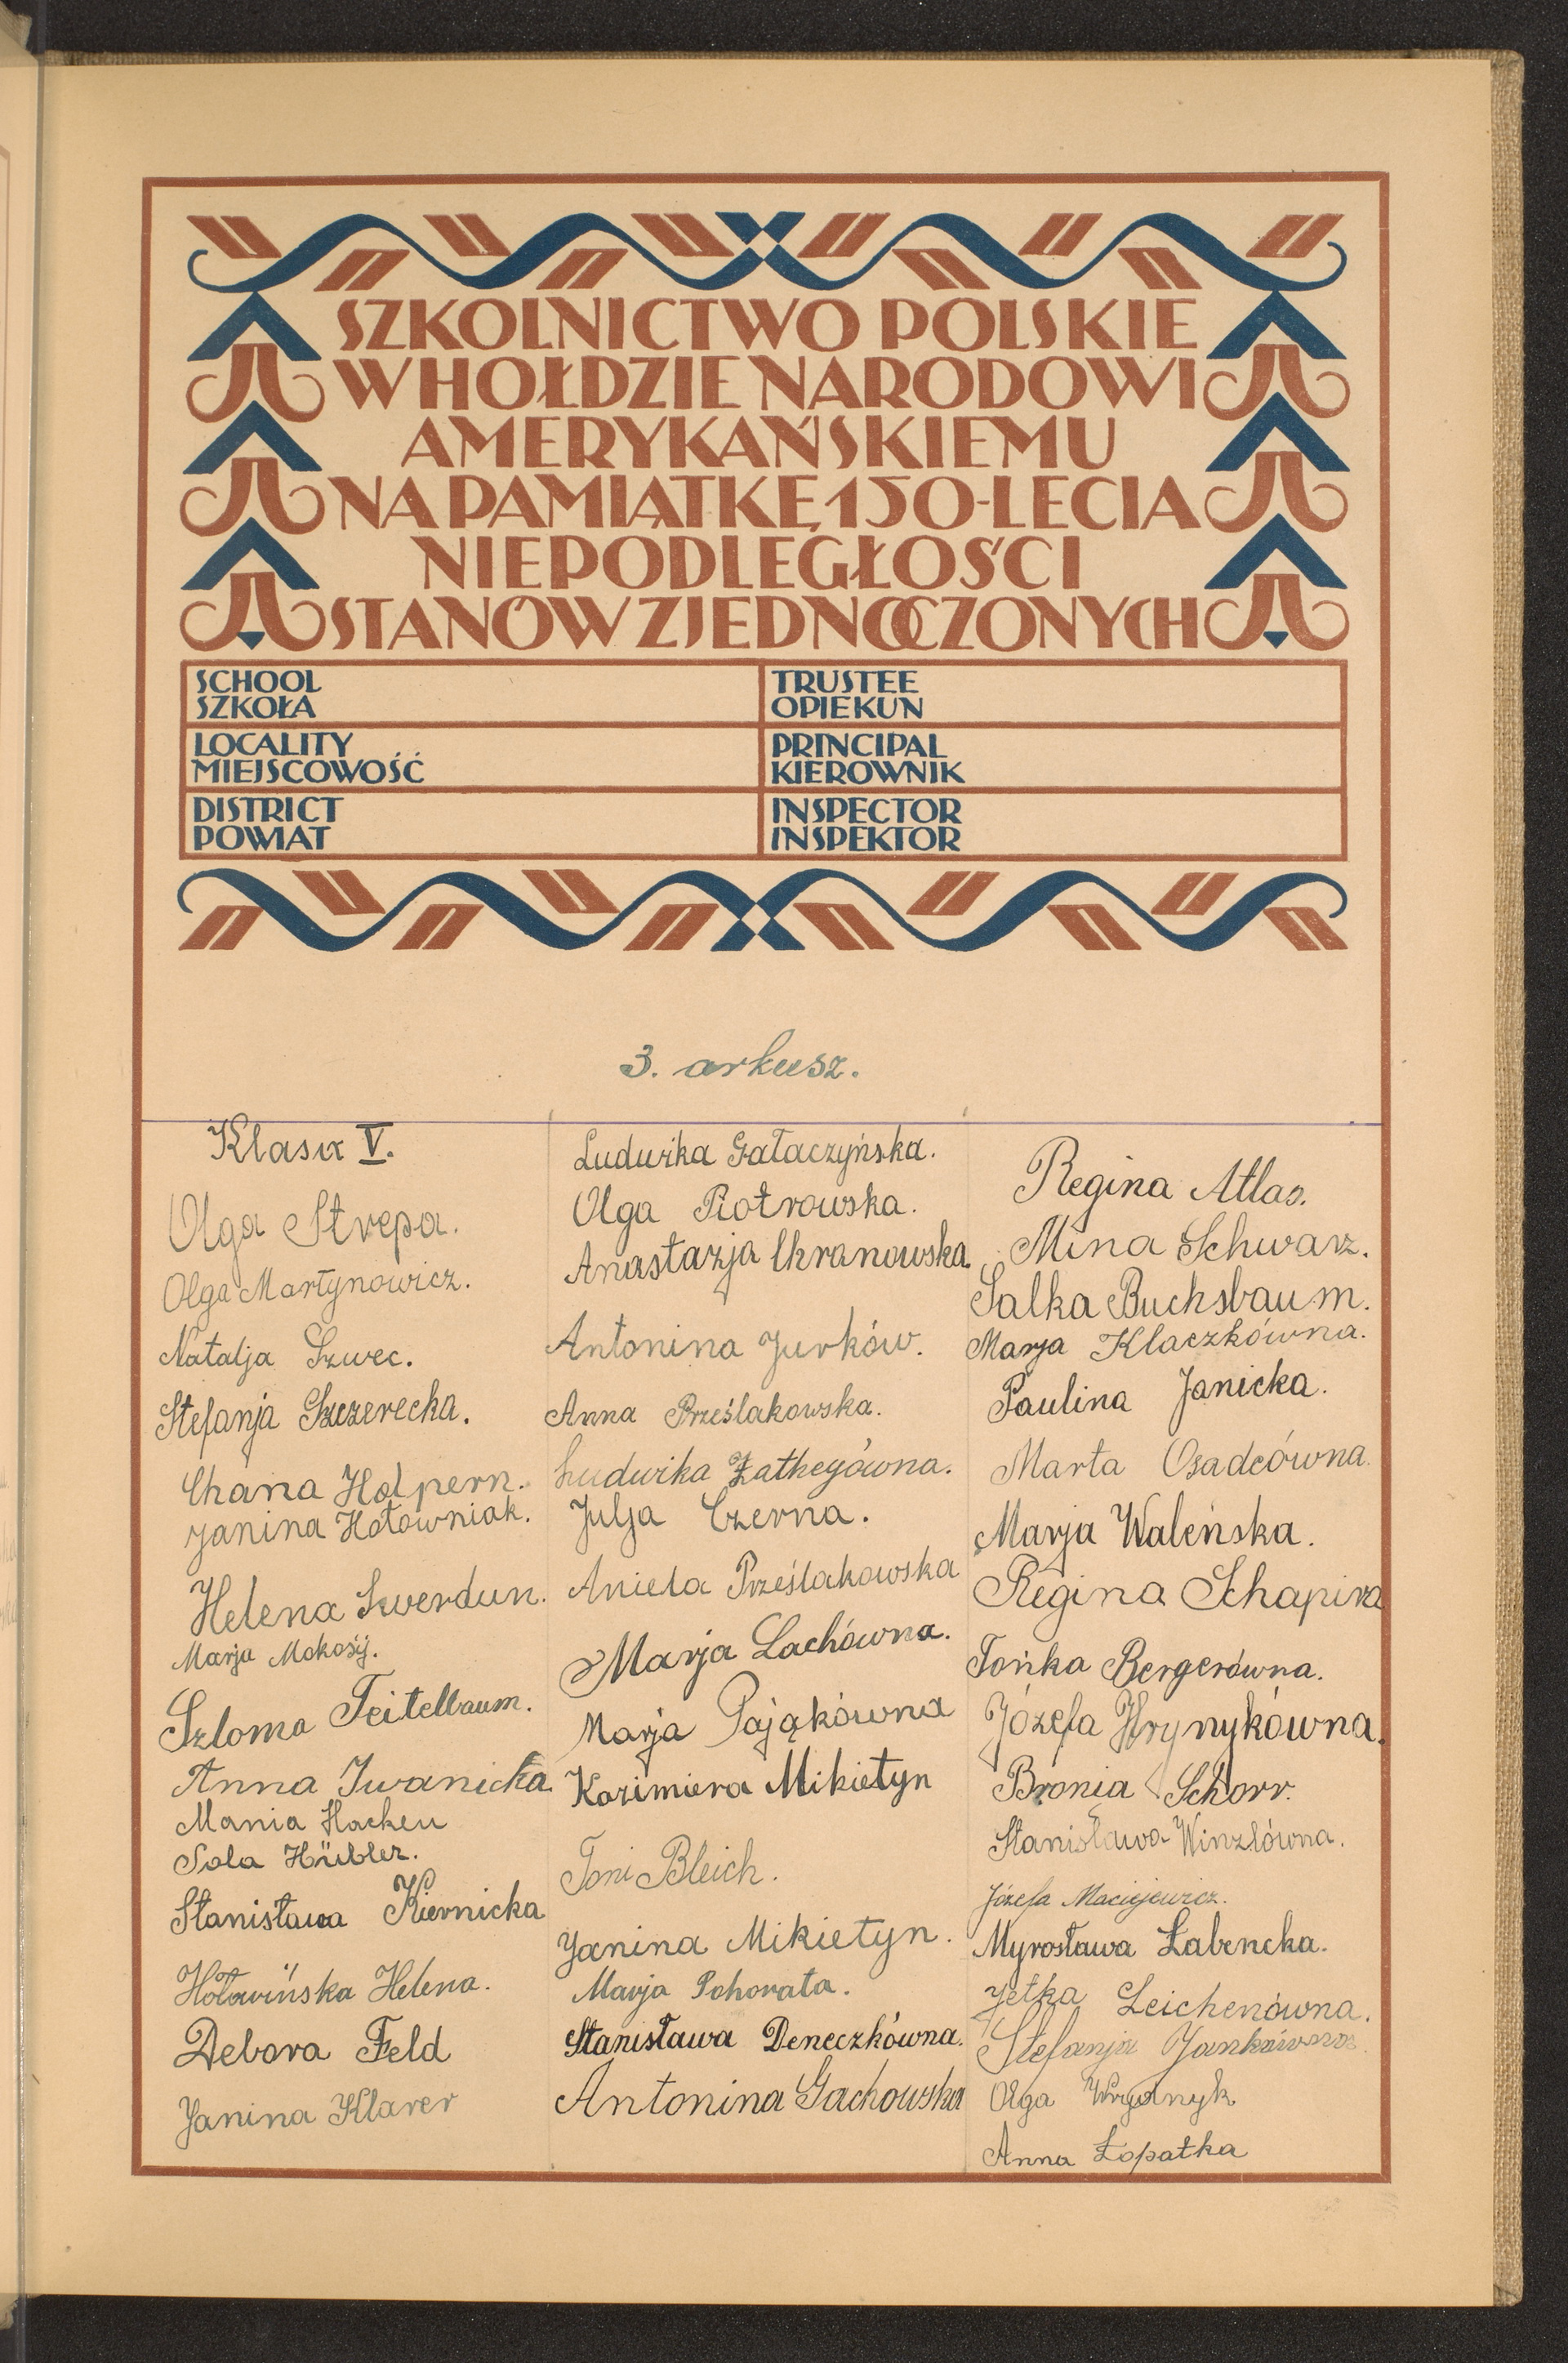 SZKOLNICTWO POLSKIE
W HOŁDZIE NARODOWI
AMERYKAŃSKIEMU
NA PAMIĄTKĘ 150-LECIA
NIEPODLEGŁOŚCI
STANÓW ZJEDNOCZONYCH
SCHOOL
SZKOŁA
TRUSTEE
OPIEKUN
LOCALITY
MIEJSCOWOŚĆ
PRINCIPAL
KIEROWNIK
DISTRICT
POWIAT
INSPECTOR
INSPEKTOR
3. arkusz.
Klasa V.
Olga Strepa.
Olga Martynowicz.
Natalja Szwec.
Stefanja Szczerecka.
Chana Halpern.
Janina Hołowniak.
Helena Swerdun.
Marja Mokosij.
Szloma Teitelbaum.
Anna Iwanicka
Mania Hacken
Sala Hübler.
Stanisława Kiernicka
Hołowińska Helena.
Debora Feld
Janina Klarer
Ludwika Gałaczyńska.
Olga Piotrowska.
Anastazja Chranowska.
Antonina Jurków.
Anna Prześlakowska.
Ludwika Zatheyówna.
Julja Czerna.
Aniela Prześlakowska
Marja Lachówna.
Marja Pająkówna
Kazimiera Mikietyn
Toni Bleich.
Janina Mikietyn.
Marja Pohorata.
Stanisława Deneczkówna.
Antonina Gachowska
Regina Atlas.
Mina Schwarz.
Salka Buchsbaum.
Marja Klaczkówna.
Paulina Janicka.
Marta Osadcówna.
Marja Waleńska.
Regina Schapira
Tońka Bergerówna.
Józefa Hrynykówna.
Bronia Schorr.
Stanisława Winzlówna.
Józefa Maciejewicz.
Myrosława Łabencka.
Jetka Leichenówna.
Stefanja Jankówna.
Olga
Anna Łopatka